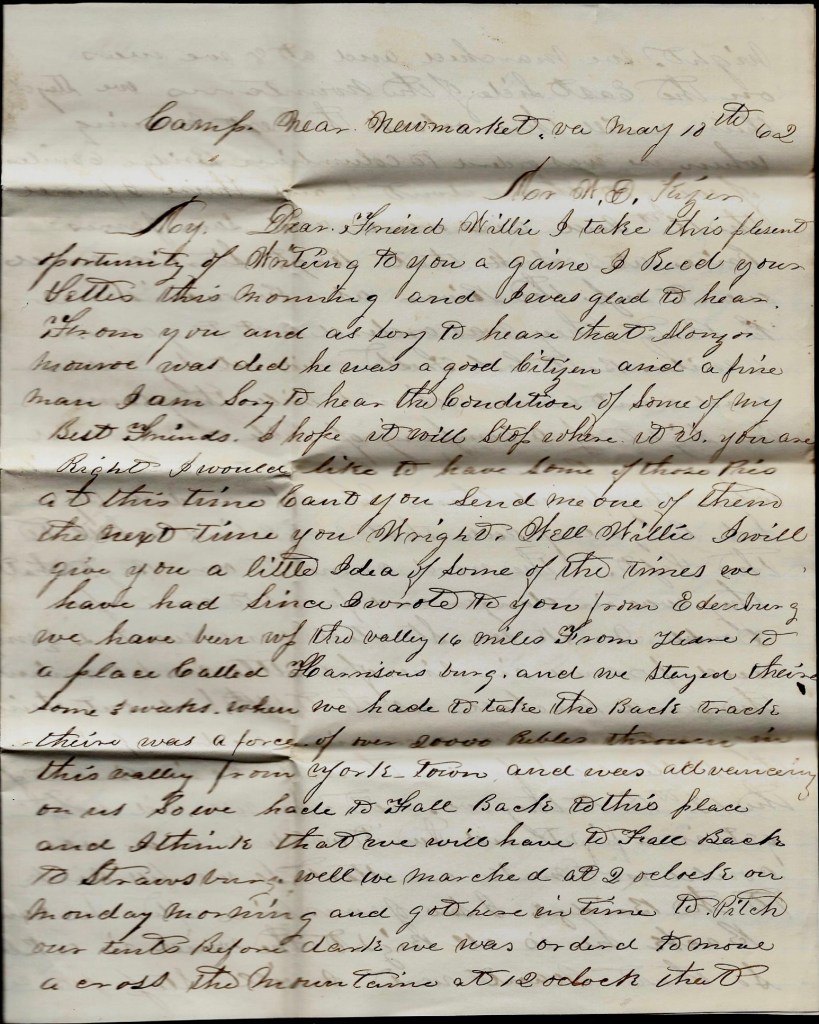 Camp. Near Newmarket. va May 10th 62
Mr W. D.
My. Dear. Friend Willie I take this present
oportunity of Writeing to you a gaine I Recd your
Letter this morning and I was glad to hear.
From you and as sory to heare that Alonzo
Monroe was ded he was a good Citizen and a fine
man I am Sory to hear the Condition of Some of my
Best Frinds. I hope it will Stop where it is. you are
Right I would like to have Some of those Pies
at this time Cant you Send me one of them
the next time you Wright. Well Willie I will
give you a little Idea of some of the times we
have had Since I wrote to you from Edensburg
we have ben up the valley 16 miles From Heare to
a place Called Harrisons burg. and we stayed theire
some 2 weeks. when we hade to take the Back track
theire was a force of over 20000 Rebles thrown in
this valley from york-town and was advancing
on us So we hade to Fall Back to this place
and I think that we will have to Fall Back
to Strawsburg. well we marched at 2 oclock on
Monday morning and got here in time to Pitch
our tents Before dark we was orderd to move
a cross the Mountains at 12 oclock that